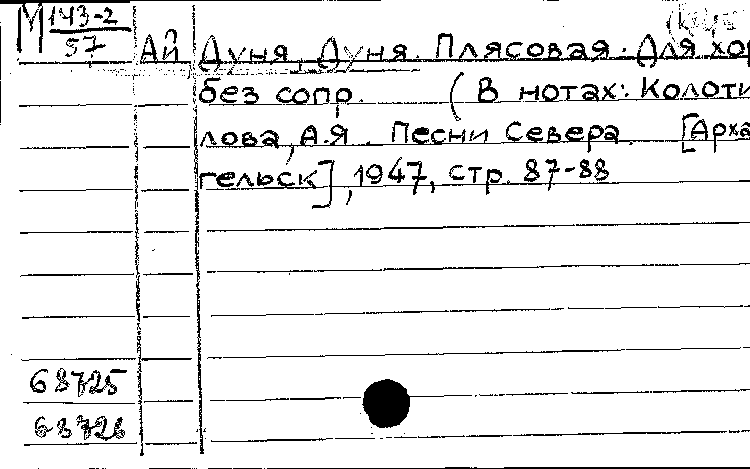 М 143-2
57
Ай Дуня, Дуня. Плясовая. Для хор
без сопр. (В нотах: Колоти
лова, А.Я. Песни Севера. [Арха
гельск], 1947, стр. 87-88
68725
68726